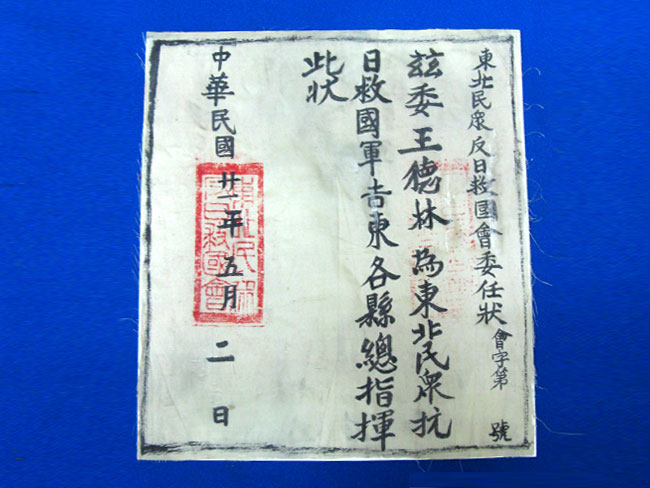 東北民眾反日救國會委任狀 會字第 號
兹委王德林為東北民眾抗
日救國軍吉東各縣總指揮
此狀
中華民國廿一年五月二日
東北民眾
反日救國會